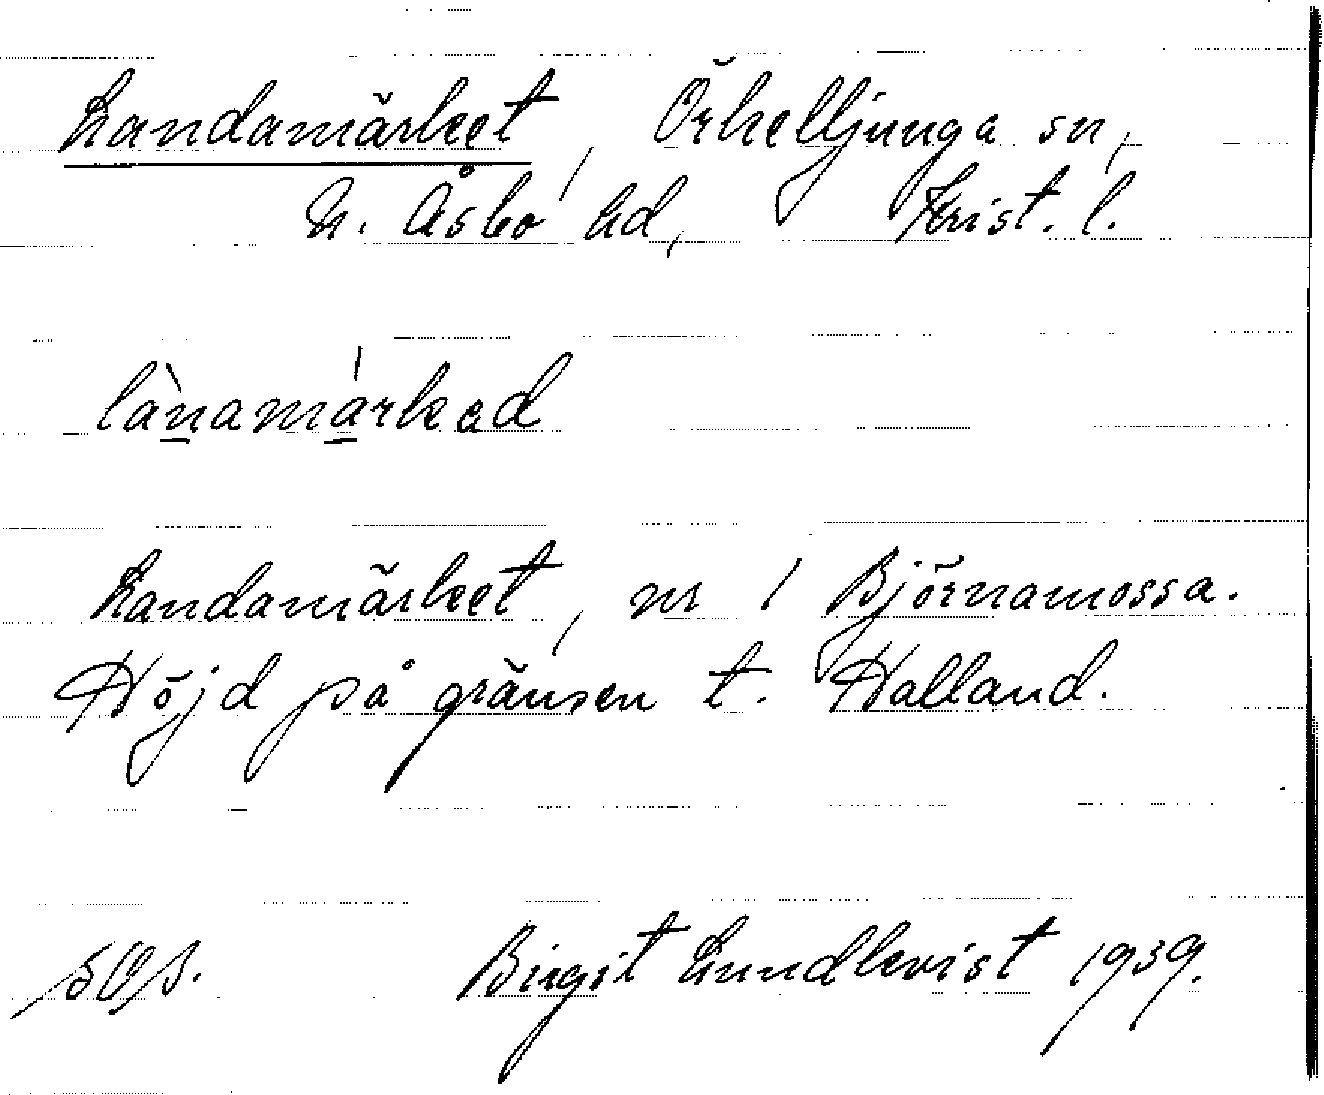 Landamärket, Örkelljunga sn,
N. Åsbo hd, Krist. l.
lànamárkəd
Landamärket, nr 1 Björnamossa.
Höjd på gränsen t. Halland.
Birgit Lundkvist 1939.